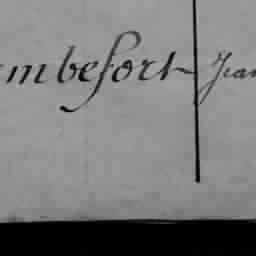 mbefort Jean